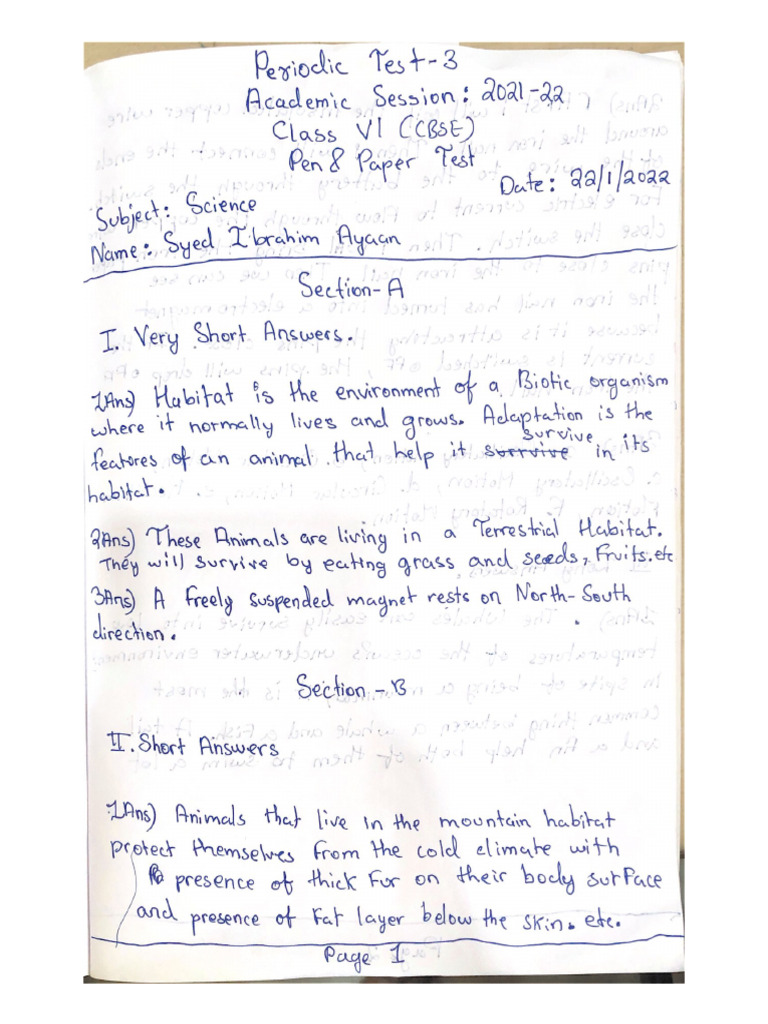 Periodic Test-3
Academic Session: 2021-22
Class VI (CBSE)
Pen & Paper Test
Date: 22/1/2022
Subject: Science
Name: Syed Ibrahim Ayaan
Section-A
I. Very Short Answers.
1Ans) Habitat is the environment of a Biotic organism
where it normally lives and grows. Adaptation is the
survive
features of an animal that help it survive in its
habitat.
2Ans) These Animals are living in a Terrestrial Habitat.
They will survive by eating grass and seeds, Fruits.etc
3Ans) A freely suspended magnet rests on North-South
direction.
Section-B
II. Short Answers
1Ans) Animals that live in the mountain habitat
protect themselves from the cold climate with
presence of thick Fur on their body surface
and presence of Fat layer below the skin. etc.
Page 1